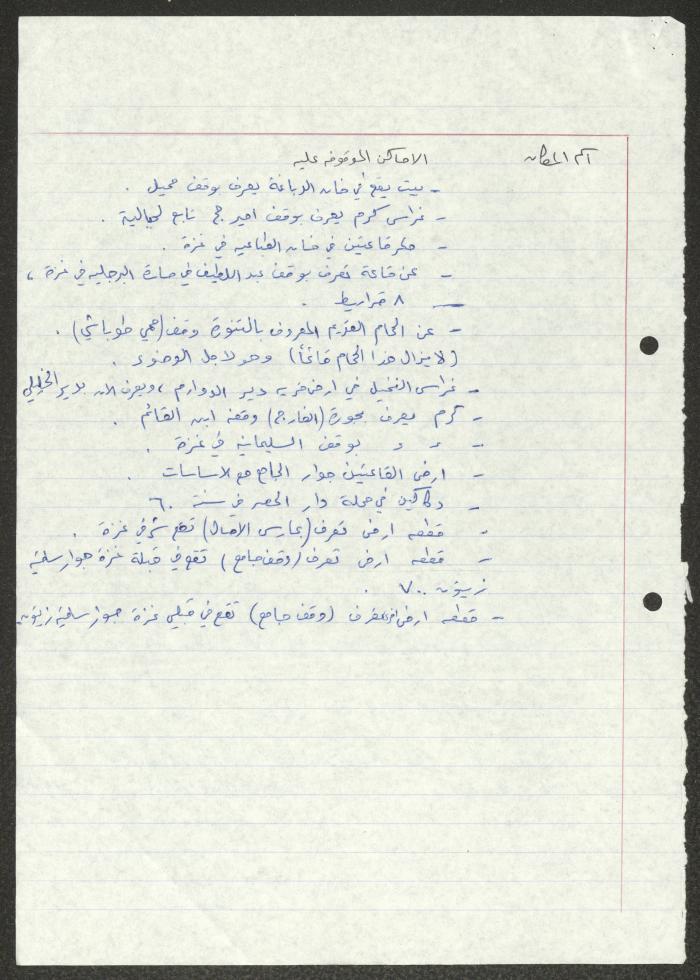 اسم المكان الاماكن الموقوفه عليه
- بيت يقع في خان الدباغة يعرف بوقف محيل .
- غراس كرم يعرف بوقف امير حج تابع لجمالية .
- حكر قاعتين في خان الطباعيه في غزة .
- عن قاعة تعرف بوقف عبد اللطيف في حارة البرجليه في غزة ،
— ٨ قراريط .
- عن الحمام القديم المعروف بالتنورة وقف (حمي طوباشي) .
(لا يزال هذا الحمام قائماً) وهو لاجل الوضوء .
- غراس النخيل في ارض قريه دير الدوارم ، ويعرف الان بدير الخليلي
- كرم يعرف بحورة (الفارج) وقفه ابن القائم .
- " " بوقف السليمانيه في غزة .
- ارض القاعتين جوار الجامع مع لاساسات .
- دكاكين في محلة دار الخضر في سنة ٦٠
- قطعه ارض تعرف (بمارس الاصال) تقع شرقي غزة .
- قطعه ارض تعرف (وقف جامع) تقع في قبلة غزة جوار ساقية
زيتون ٧٠٠ .
- قطعه ارض اخرى تعرف (وقف جامع) تقع في قبلي غزة جوار ساقية زيتون